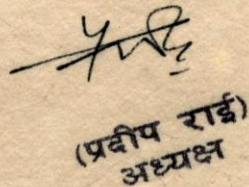 (प्रदीप राई)
अध्यक्ष